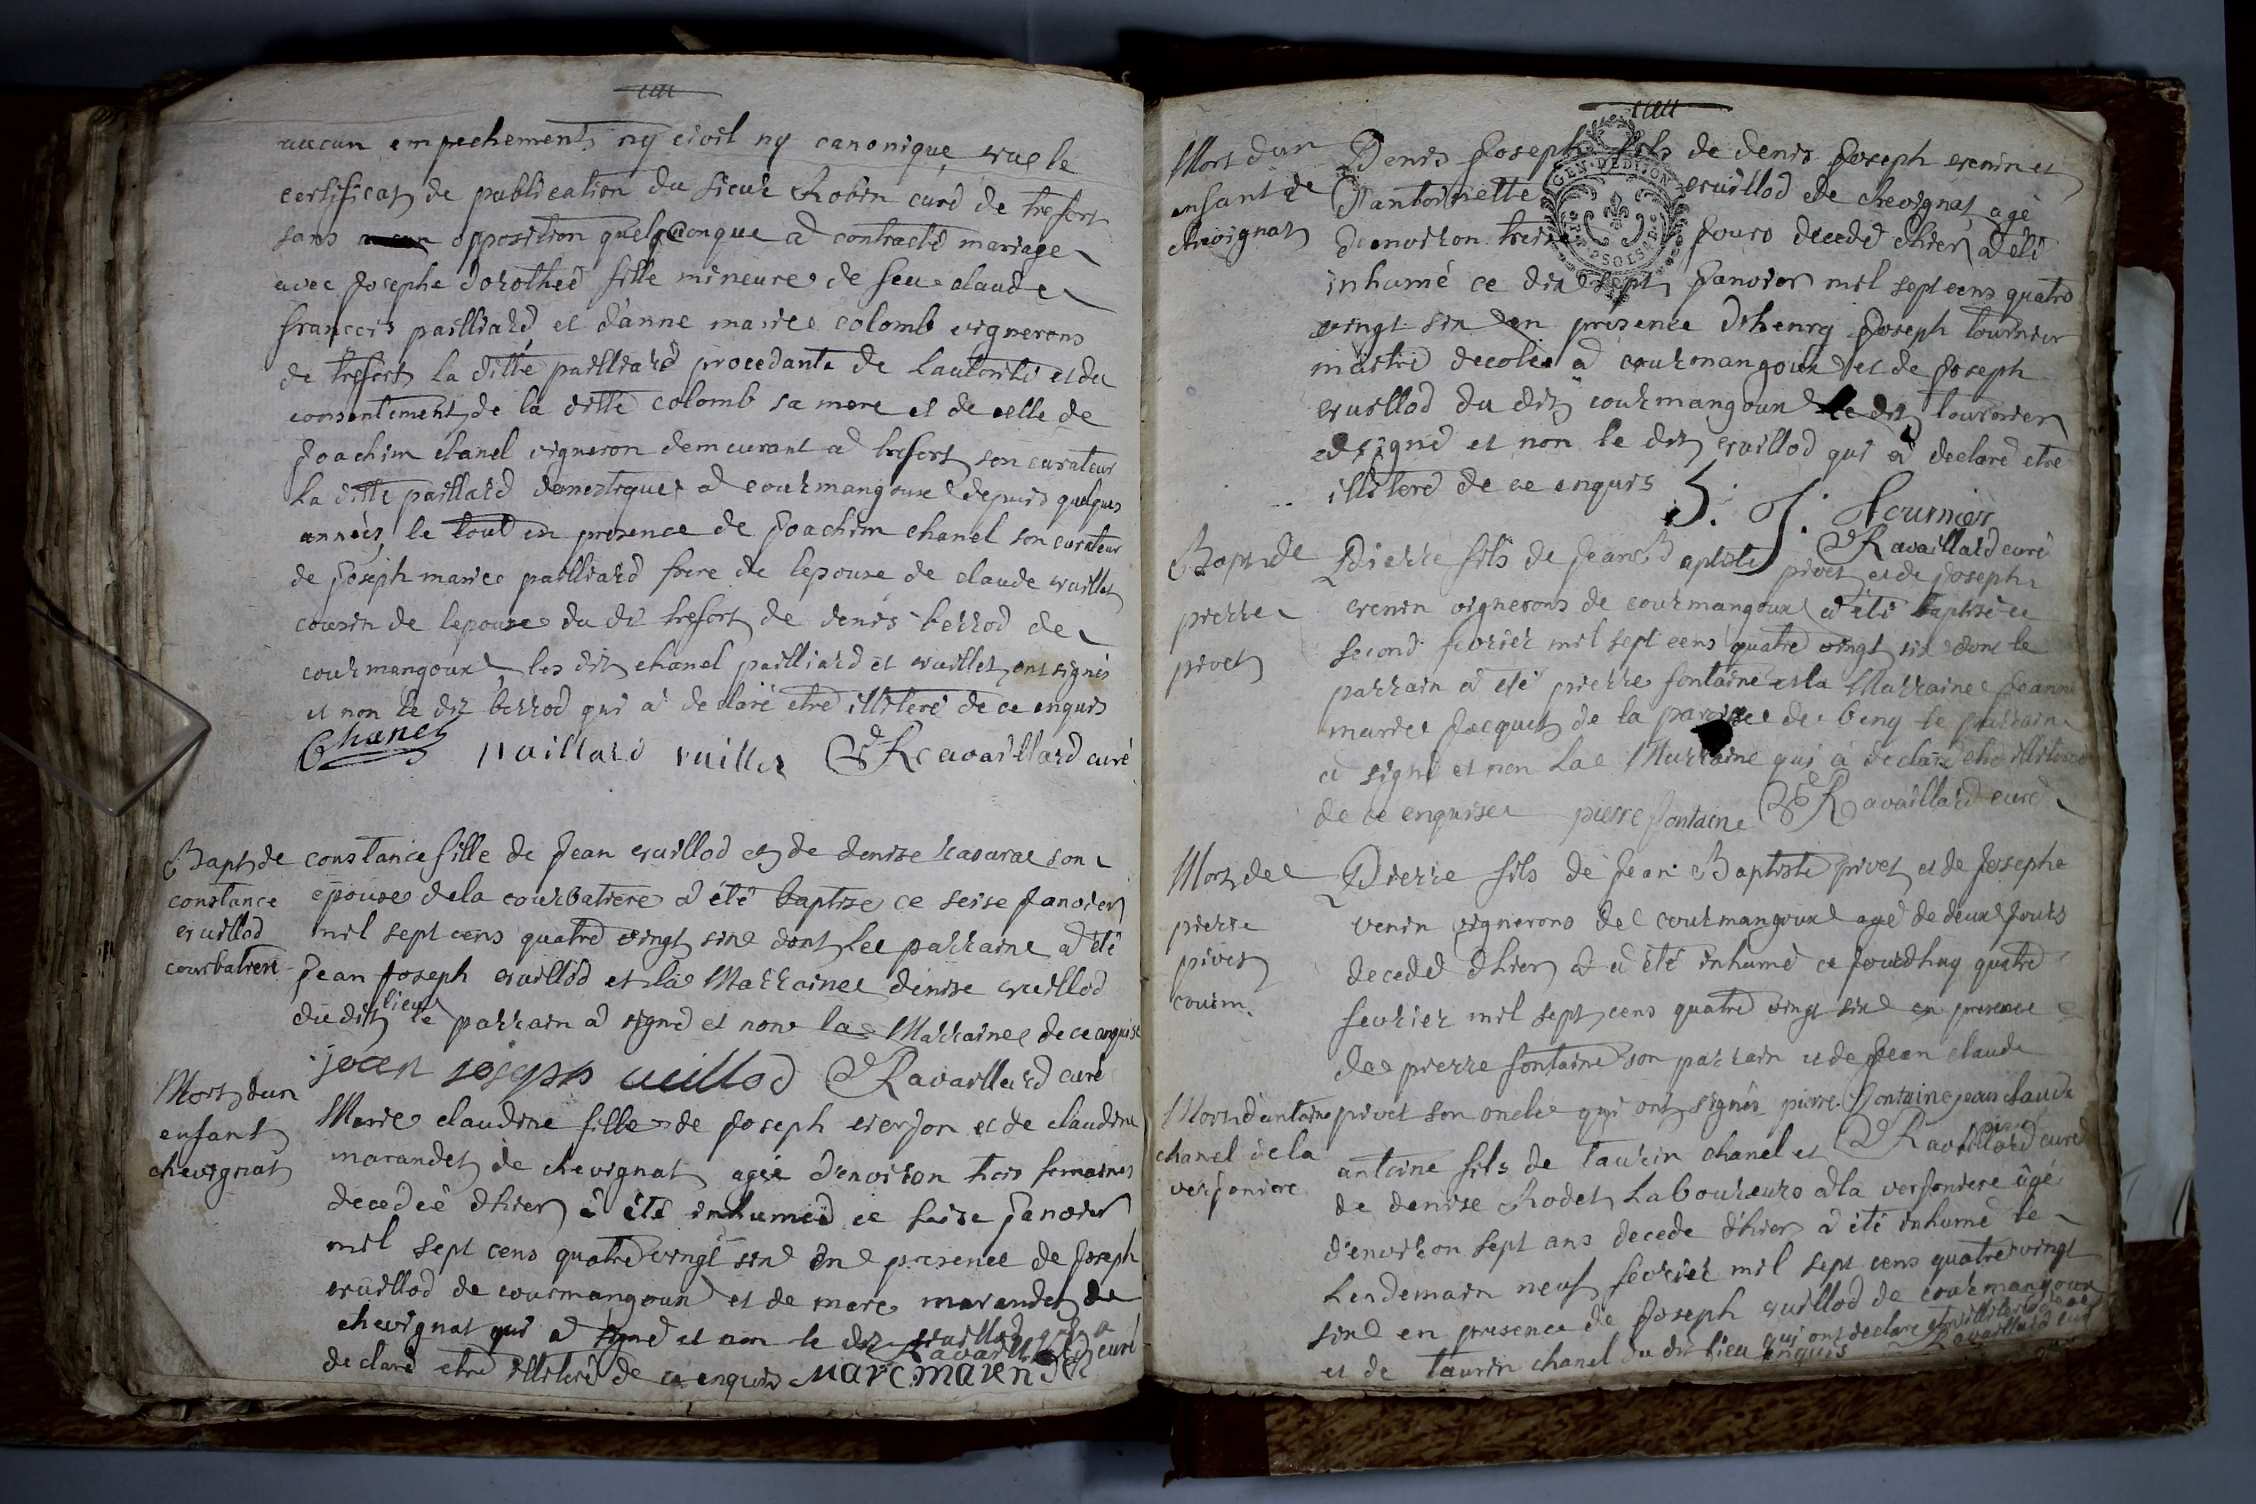 aucun empechement ny civil ny canonique vue le
certificat de publication du sieur Robin curé de trefort
sans opposition quelqconque a contracté mariage
avec josephe dorothée fille mineure de feu claude
francois pailliard et d'anne marie colomb vignerons
de trefort la ditte pailliard procedante de l'autorité et du
consentement de la ditte colomb sa mere et de celle de
joachim chanel vigneron demeurant a trefort son curateur
la ditte paillard domestique a courmangoux depuis quelques
années, le tout en presence de joachim chanel son curateur
de joseph marie pailliard frere de lepouse de claude vuillet
cousin de lepouse du dit trefort de denis berrod de
courmangoux les dits chanel pailliard et vuillet ont signés
et non le dit berrod qui a declaré etre illiteré de ce enquis
Chanel paillard vuillet Ravaillard curé
Bapt de
constance
vuillod
courbatiere
constance fille de jean vuillod et de denise ravaras son
epouse de la courbatiere a été baptise ce seise janvier
mil sept cens quatre vingt six dont le parrain a été
jean joseph vuillod et la Marraine denise vuillod
du dit lieu le parrain a signé et non la Marraine de ce enquise
jean joseph vuillod Ravaillard curé
Mort d'un
enfant
chevignat
Marie claudine fille de joseph vierjon et de claudine
marandet de chevignat agée d'environ trois semaines
decedeé d'hier a été inhumeé ce seise janvier
mil sept cens quatre vingt six en presence de joseph
vuillod de courmangoux et de marc marandet de
chevignat qui a signé et non le dit vuillod qui a
declaré etre illiteré de ce enquis marc maren Ravaillard curé
Mort d'un
enfant de
chevignat
Denis joseph fils de denis joseph venin et
d'antoinette vuillod de chevignat agé
d'environ treise jours decedé d'hier a été
inhumé ce dix sept janvier mil sept cens quatre
vingt six en presence d'henry joseph tournier
maitre decole a courmangoux et de joseph
vuillod du dit courmangoux le dit tournier
a signé et non le dit vuillod qui a declaré etre
illiteré de ce enquis h: j: tournier
Ravaillard curé
Bapt de
pierre
pivet
Pierre fils de jean Baptiste pivet et de josephe
venin vignerons de courmangoux a été baptisé ce
second fevrier mil sept cens quatre vingt six dont le
parrain a été pierre fontaine et la Marraine jeanne
marie jacquet de la paroisse de beny le parrain
a signé et non la Marraine qui a declaré etre illiterée
de ce enquise pierre fontaine Ravaillard curé
Mort de
pierre
pivet
courm.
Pierre fils de jean Baptiste pivet et de josephe
venin vignerons de courmangoux agé de deux jours
decedé d'hier a été inhumé ce jourdhuy quatre
fevrier mil sept cens quatre vingt six en presence
de pierre fontaine son parrain et de jean claude
pivet son oncle qui ont signés pierre fontaine jean claude
pivet
Ravaillard curé
Mort d'antoine
chanel de la
verjoniere
antoine fils de taurin chanel et
de denise Rodet Laboureurs a la verjoniere agé
d'environ sept ans decedé d'hier a été inhumé le
Lendemain neuf fevrier mil sept cens quatre vingt
six en presence de joseph vuillod de courmangoux
et de taurin chanel du dit lieu qui ont declaré etre illiteré de ce
enquis Ravaillard curé